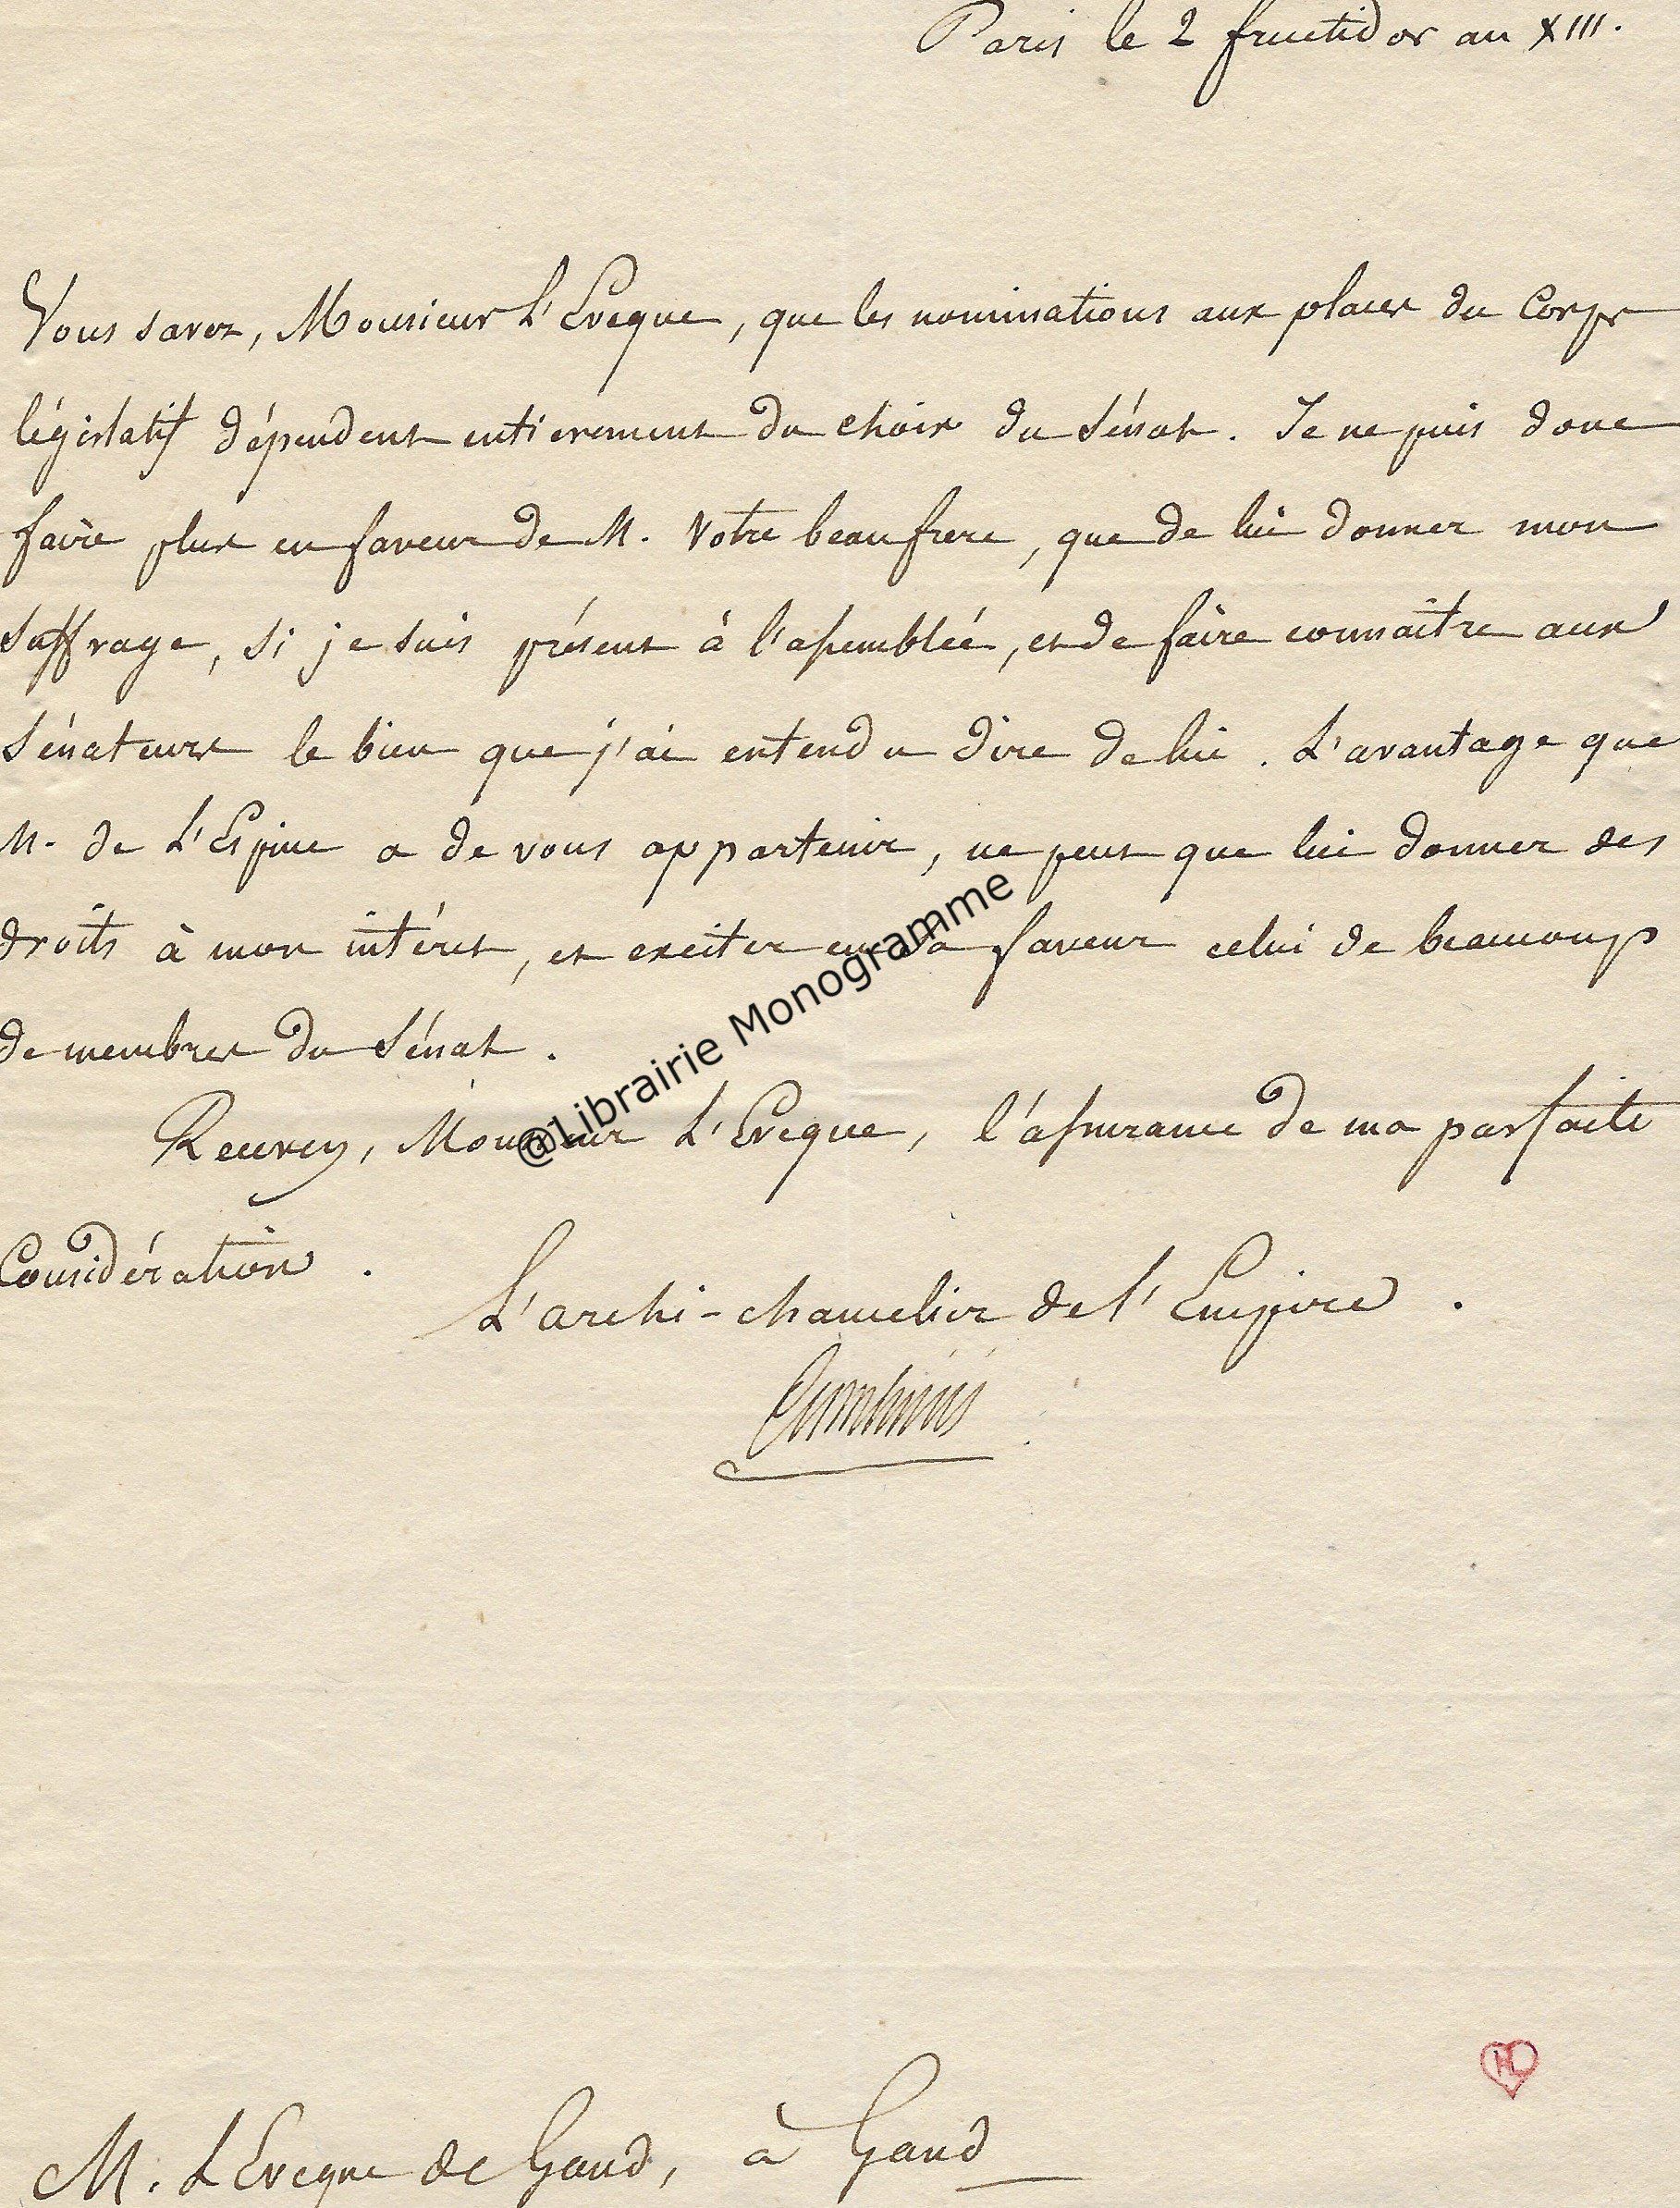 Paris le 2 fructidor an XIII.
Vous savez, Monsieur L'Eveque, que les nominations aux places du Corps
législatif dépendent entierement du choix du Sénat. Je ne puis donc
faire plus en faveur de M. Votre beaufrere, que de lui donner mon
suffrage, si je suis présent à l'assemblée, et de faire connaitre aux
Sénateurs le bien que j'ai entendu dire de lui. L'avantage que
M. de L'Espine a de vous appartenir, ne peut que lui donner des
droits à mon intéret, et exciter en sa faveur celui de beaucoup
de membres du Sénat.
@Librairie Monogramme
Recevez, Monsieur L'Eveque, l'assurance de ma parfaite
Considération.
L'archi-chancelier de l'Empire.
M. L'Eveque de Gand, à Gand